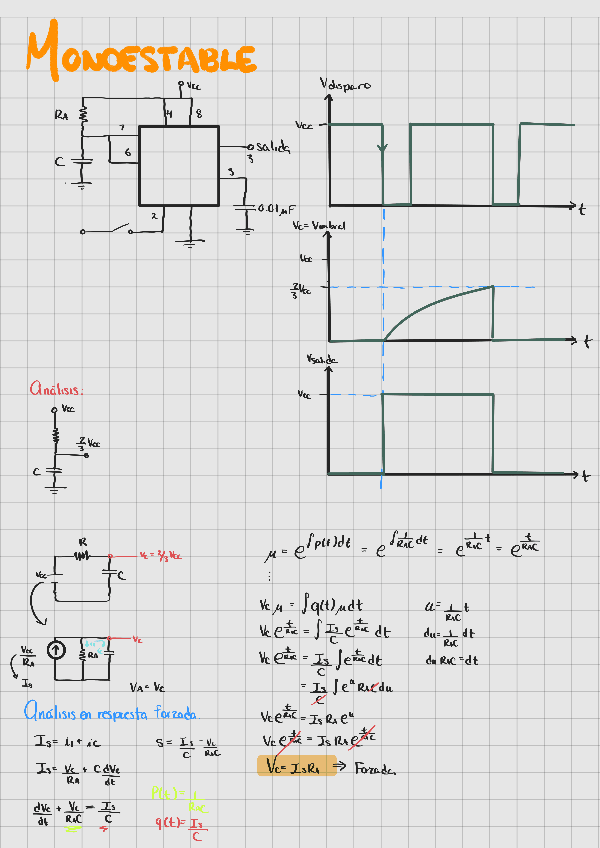 MONOESTABLE
Vcc
RA
4
8
7
6
C
salida
3
5
0.01µF
2
Vdisparo
Vcc
t
Vc = Vumbral
Vcc
2/3 Vcc
t
Vsalida
Vcc
t
Análisis:
Vcc
2/3 Vcc
C
R
Vc = 2/3 Vcc
Vcc
C
Vcc/RA
Is
RA
Vc
VA = Vc
Análisis en respuesta forzada
Is = i1 + ic
S = Is/C - Vc/RAC
Is = Vc/RA + C dVc/dt
dVc/dt + Vc/RAC = Is/C
P(t) = 1/RAC
q(t) = Is/C
µ = e^∫p(t)dt = e^∫1/RAC dt = e^1/RAC t = e^t/RAC
⋮
Vc µ = ∫q(t)µdt
u = 1/RAC t
Vc e^t/RAC = ∫ Is/C e^t/RAC dt
du = 1/RAC dt
Vc e^t/RAC = Is/C ∫e^t/RAC dt
du RAC = dt
= Is/C ∫e^u RAC du
Vc e^t/RAC = Is RA e^u
Vc e^t/RAC = Is RA e^t/RAC
Vc = Is RA ⇒ Forzada